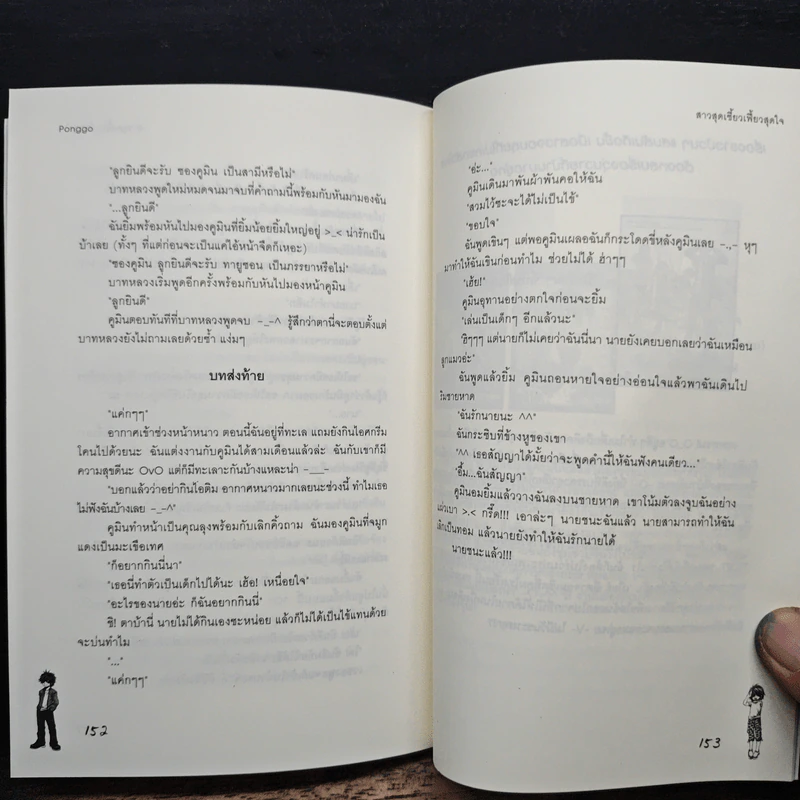 Ponggo
"ลูกยินดีจะรับ ซองคูมิน เป็นสามีหรือไม่"
บาทหลวงพูดใหม่หมดจนมาจบที่คำถามนี้พร้อมกับหันมามองฉัน
"...ลูกยินดี"
ฉันยิ้มพร้อมหันไปมองคูมินที่ยิ้มน้อยยิ้มใหญ่อยู่ >_< น่ารักเป็น
บ้าเลย (ทั้งๆ ที่แต่ก่อนจะเป็นแค่ไอ้หน้าจืดก็เหอะ)
"ซองคูมิน ลูกยินดีจะรับ ทายูซอน เป็นภรรยาหรือไม่"
บาทหลวงเริ่มพูดอีกครั้งพร้อมกับหันไปมองหน้าคูมิน
"ลูกยินดี"
คูมินตอบทันทีที่บาทหลวงพูดจบ -_-^ รู้สึกว่าตานี่จะตอบตั้งแต่
บาทหลวงยังไม่ถามเลยด้วยซ้ำ แง่มๆ
บทส่งท้าย
"แค่กๆๆ"
อากาศเข้าช่วงหน้าหนาว ตอนนี้ฉันอยู่ที่ทะเล แถมยังกินไอศกรีม
โคนไปด้วยนะ ฉันแต่งงานกับคูมินได้สามเดือนแล้วล่ะ ฉันกับเขาก็มี
ความสุขดีนะ OvO แต่ก็มีทะเลาะกันบ้างแหละน่า -___-
"บอกแล้วว่าอย่ากินไอติม อากาศหนาวมากเลยนะช่วงนี้ ทำไมเธอ
ไม่ฟังฉันบ้างเลย -_-^"
คูมินทำหน้าเป็นคุณลุงพร้อมกับเลิกคิ้วถาม ฉันมองคูมินที่จมูก
แดงเป็นมะเขือเทศ
"ก็อยากกินนี่นา"
"เธอนี่ทำตัวเป็นเด็กไปได้นะ เฮ้อ! เหนื่อยใจ"
"อะไรของนายอ่ะ ก็ฉันอยากกินนี่"
ชิ! ตาบ้านี่ นายไม่ได้กินเองซะหน่อย แล้วก็ไม่ได้เป็นไข้แทนด้วย
จะบ่นทำไม
"..."
"แค่กๆๆ"
152
สาวสุดเซี้ยวเฟี้ยวสุดใจ
"อ่ะ..."
คูมินเดินมาพันผ้าพันคอให้ฉัน
"สวมไว้ซะจะได้ไม่เป็นไข้"
"ขอบใจ"
ฉันพูดเขินๆ แต่พอคูมินเผลอฉันก็กระโดดขี่หลังคูมินเลย -.,- หุๆ
มาทำให้ฉันเขินก่อนทำไม ช่วยไม่ได้ ฮ่าๆๆ
"เฮ้ย!"
คูมินอุทานอย่างตกใจก่อนจะยิ้ม
"เล่นเป็นเด็กๆ อีกแล้วนะ"
"ฮิๆๆ แต่นายก็ไม่เคยว่าฉันนี่นา นายยังเคยบอกเลยว่าฉันเหมือน
ลูกแมวอ่ะ"
ฉันพูดแล้วยิ้ม คูมินถอนหายใจอย่างอ่อนใจแล้วพาฉันเดินไป
ริมชายหาด
"ฉันรักนายนะ ^^"
ฉันกระซิบที่ข้างหูของเขา
"^^ เธอสัญญาได้มั้ยว่าจะพูดคำนี้ให้ฉันฟังคนเดียว..."
"อื้ม...ฉันสัญญา"
คูมินอมยิ้มแล้ววางฉันลงบนชายหาด เขาโน้มตัวลงจูบฉันอย่าง
แผ่วเบา >.< กรี๊ด!!! เอาล่ะๆ นายชนะฉันแล้ว นายสามารถทำให้ฉัน
เลิกเป็นทอม แล้วนายยังทำให้ฉันรักนายได้
นายชนะแล้ว!!!
153